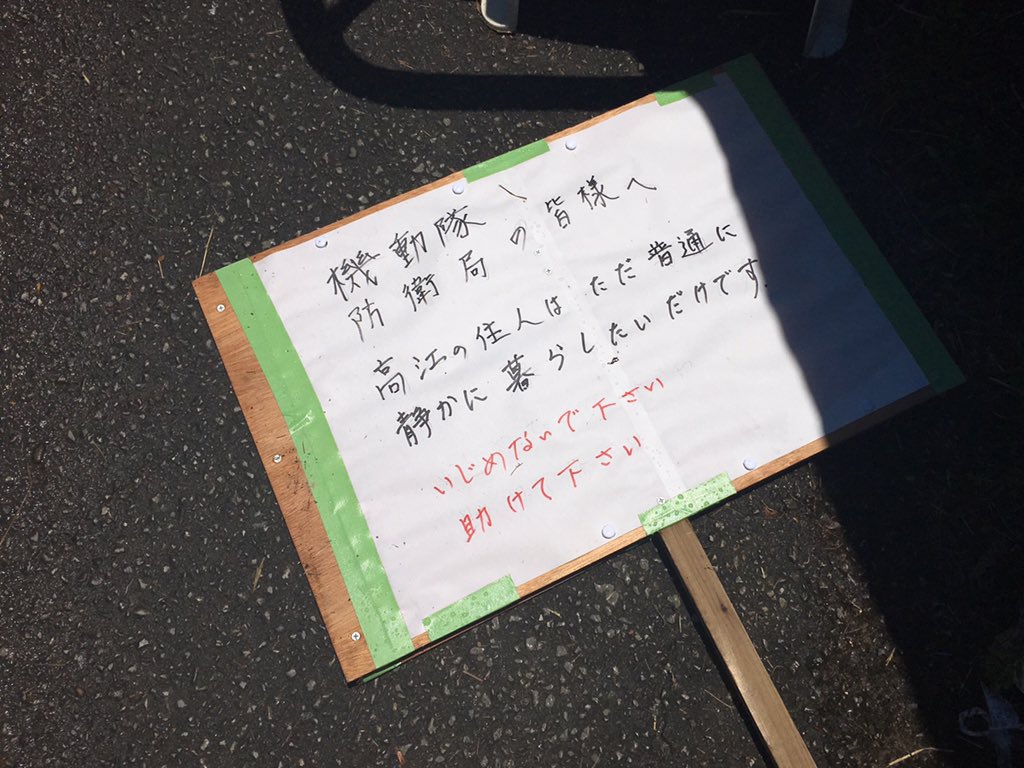 機動隊、
防衛局の皆様へ
高江の住人はただ普通に
静かに暮らしたいだけです.
いじめないで下さい
助けて下さい